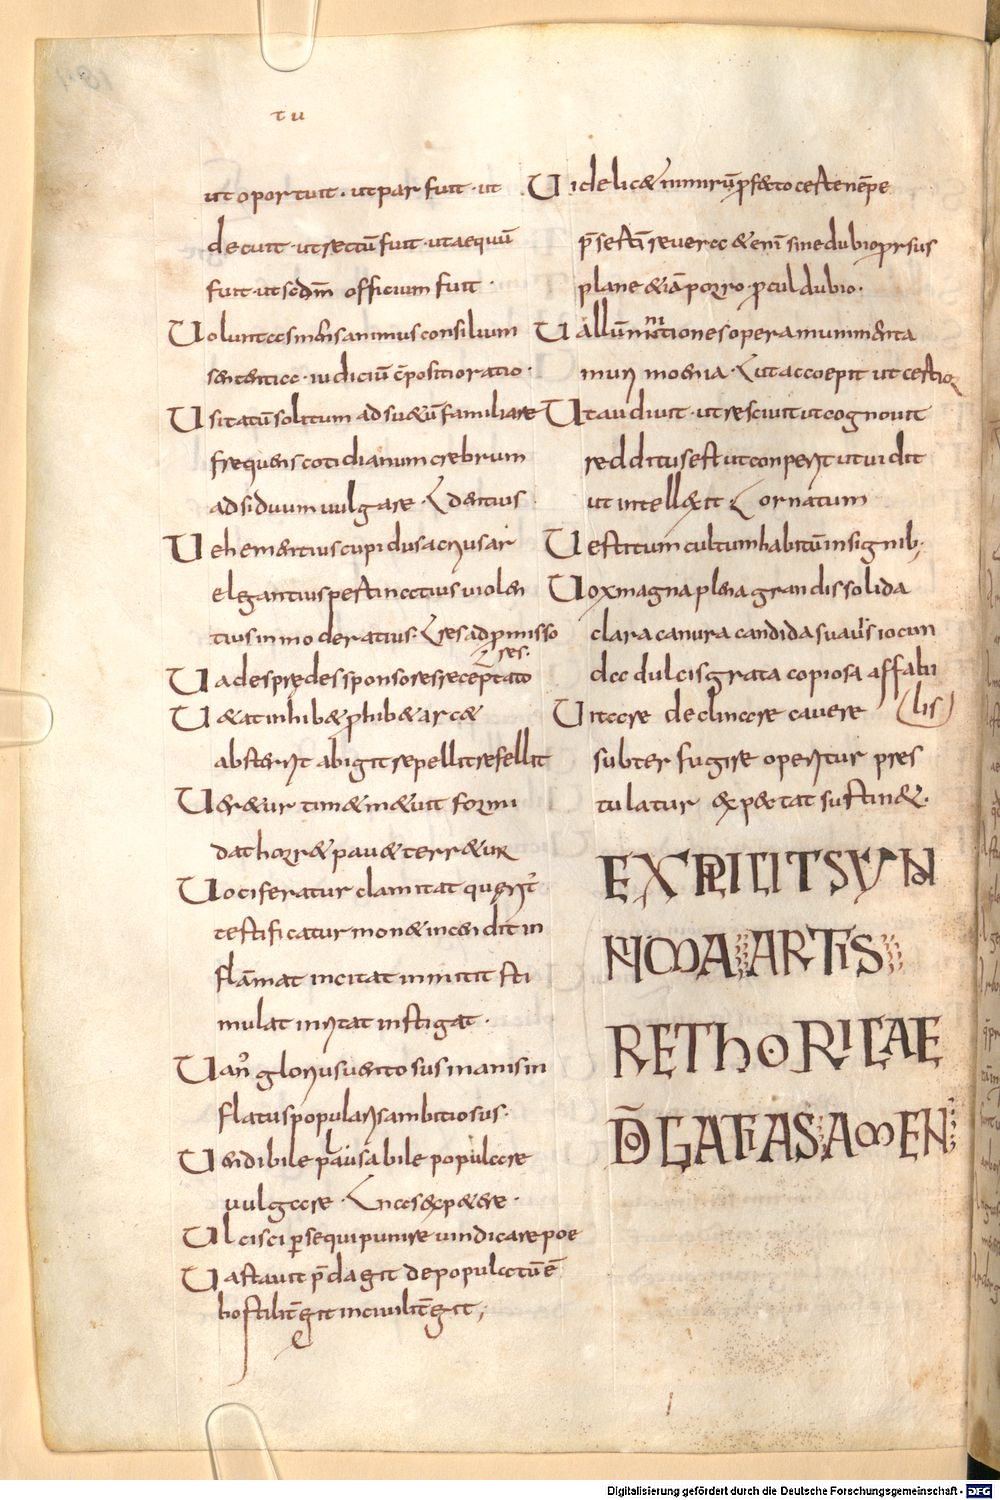 tu
ut oportuit · ut par fuit · ut
decuit · ut rectū fuit · ut aequū
fuit · ut sedm̄ officium fuit ·
Uoluntas mens animus consilium
sententia · iudiciū cp̄ositio ratio ·
Usitatū solitum adsuetū familiare
frequens cotidianum crebrum
adsiduum uulgare · dentius
Uehementius cupidus acrius ar
elegantius pestinatius uiolen
tius inmoderatius · res ad pmisso
res ·
Uades prędes sponsores receptato
Uetat inhibet phibet arcet
absterrit abigit repellit refellit
Ueretur timet metuit formi
dat horret pauet terretur
Uociferatur clamitat querit
testificatur monet incendit in
flāmat incitat inmitit sti
mulat inritat instigat ·
Uan glorius uentosus inanis in
flatus popularis ambitiosus ·
Uendibile plausabile populare
uulgare · Incas expetere ·
Ulcisci psequi punire uindicare poe
Uastauit p̄dagit depopulatū ē
hostilit̄ egit inciuilit̄ egit;
Uidelicet nimirū pfecto est nēpe
p̄sertī seuera et enī sine dubio prsus
plane etiā porro · pcul dubio ·
Uallū munitiones opera munimenta
muri moenia · ut accoepit ut certior
Ut audiuit · ut resciuit ut cognouit
redditus est ut conperit ut uidit
ut intellexit · ornatum
Uestitum cultum habitū insignib;
Uox magna plena grandis solida
clara canura candida suauis iocun
da dulcis grata copiosa affabi
(lis)
Uitare declinare cauere
subter fugire operitur pres
tulatur expectat sustinet.
EXPLICIT SYN
NIMA ARTIS
RETHORICAE
DŌ GATIAS AMEN
Digitalisierung gefördert durch die Deutsche Forschungsgemeinschaft - DFG